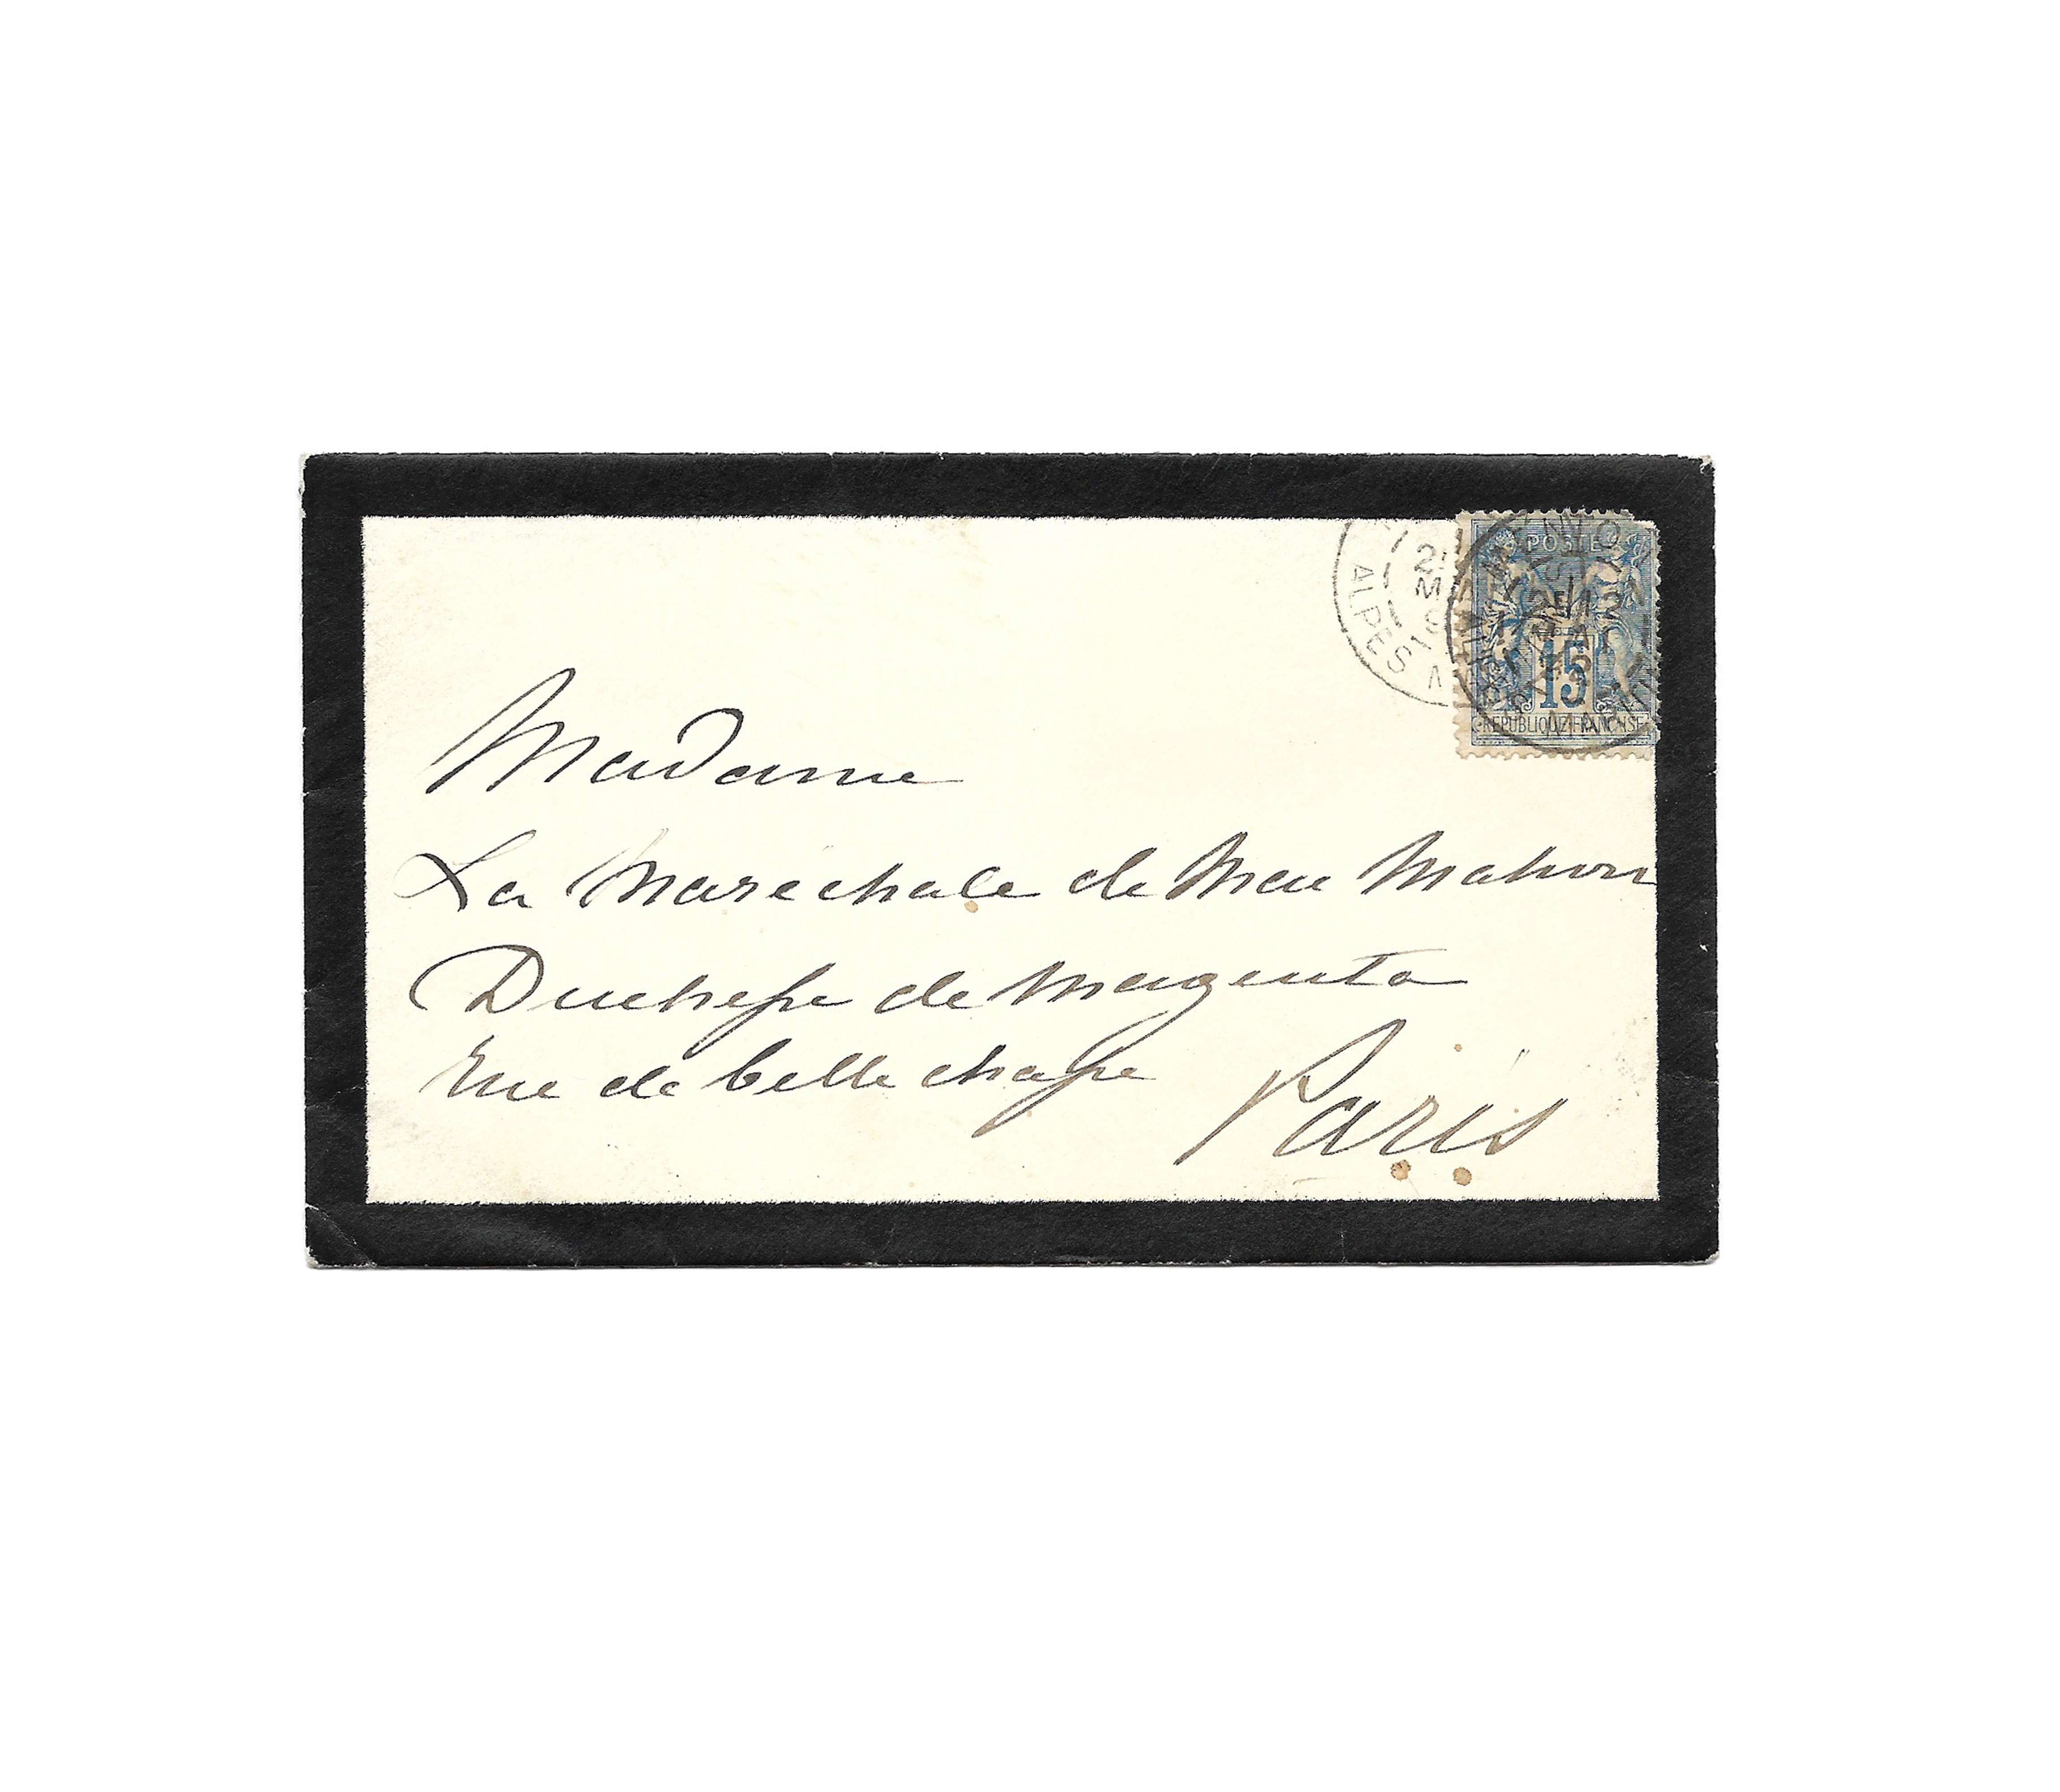 POSTE
15
REPUBLIQUE FRANCAISE
ALPES M
Madame
La Maréchale de Mac Mahon
Duchesse de Magenta
Rue de belle chasse Paris